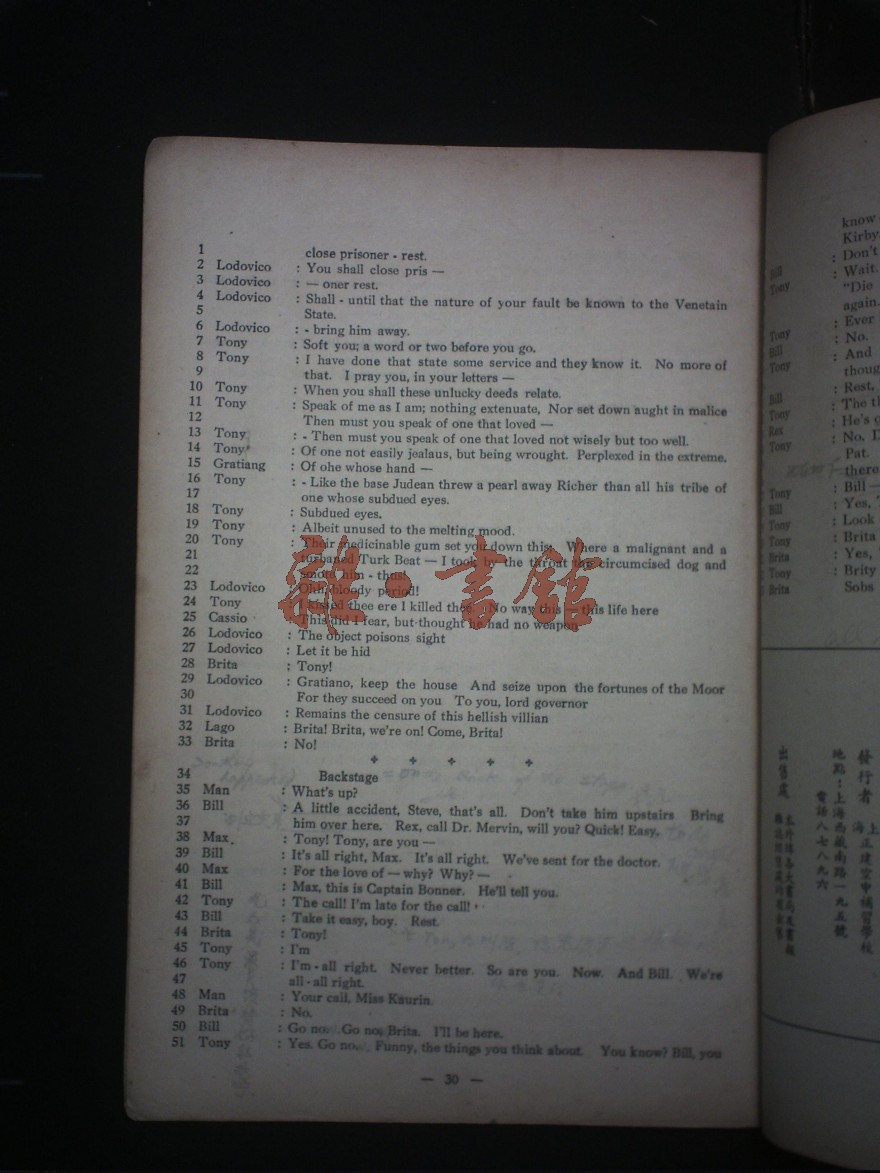 1 close prisoner - rest.
2 Lodovico : You shall close pris —
3 Lodovico : — oner rest.
4 Lodovico : Shall - until that the nature of your fault be known to the Venetain
5 State.
6 Lodovico : - bring him away.
7 Tony : Soft you; a word or two before you go.
8 Tony : I have done that state some service and they know it. No more of
9 that. I pray you, in your letters —
10 Tony : When you shall these unlucky deeds relate.
11 Tony : Speak of me as I am; nothing extenuate, Nor set down aught in malice
12 Then must you speak of one that loved —
13 Tony : - Then must you speak of one that loved not wisely but too well.
14 Tony : Of one not easily jealaus, but being wrought. Perplexed in the extreme.
15 Gratiang : Of ohe whose hand —
16 Tony : - Like the base Judean threw a pearl away Richer than all his tribe of
17 one whose subdued eyes.
18 Tony : Subdued eyes.
19 Tony : Albeit unused to the melting mood.
20 Tony : Their medicinable gum set you down this. Where a malignant and a
21 turbaned Turk Beat — I took by the throat the circumcised dog and
22 smote him - thus!
23 Lodovico : Ohh, bloody period!
24 Tony : I kissed thee ere I killed thee. No way this — this life here
25 Cassio : This did I fear, but thought he had no weapon
26 Lodovico : The object poisons sight
27 Lodovico : Let it be hid
28 Brita : Tony!
29 Lodovico : Gratiano, keep the house And seize upon the fortunes of the Moor
30 For they succeed on you To you, lord governor
31 Lodovico : Remains the censure of this hellish villian
32 Lago : Brita! Brita, we're on! Come, Brita!
33 Brita : No!
34 Backstage
35 Man : What's up?
36 Bill : A little accident, Steve, that's all. Don't take him upstairs Bring
37 him over here. Rex, call Dr. Mervin, will you? Quick! Easy.
38 Max : Tony! Tony, are you —
39 Bill : It's all right, Max. It's all right. We've sent for the doctor.
40 Max : For the love of — why? Why? —
41 Bill : Max, this is Captain Bonner. He'll tell you.
42 Tony : The call! I'm late for the call!
43 Bill : Take it easy, boy. Rest.
44 Brita : Tony!
45 Tony : I'm
46 Tony : I'm - all right. Never better. So are you. Now. And Bill. We're
47 all - all right.
48 Man : Your call, Miss Kaurin.
49 Brita : No.
50 Bill : Go no. Go no, Brita. I'll be here.
51 Tony : Yes. Go no. Funny, the things you think about. You know? Bill, you
— 30 —
雜·書館
know
Kirby,
: Don't
Bill : Wait.
Tony "Die
again.
: Ever
Tony : No.
Bill : And
Tony thoug
: Rest,
Bill : The th
Tony : He's g
Rex : No. D
Tony Pat.
there
Tony : Bill —
Bill : Yes, "
Tony : Look
Tony : Brita
Brita : Yes,
Tony : Brity
Brita Sobs
發行者
上海正建空中補習學校
地點：上海西藏南路一九五號
電話八七八九六
出售處